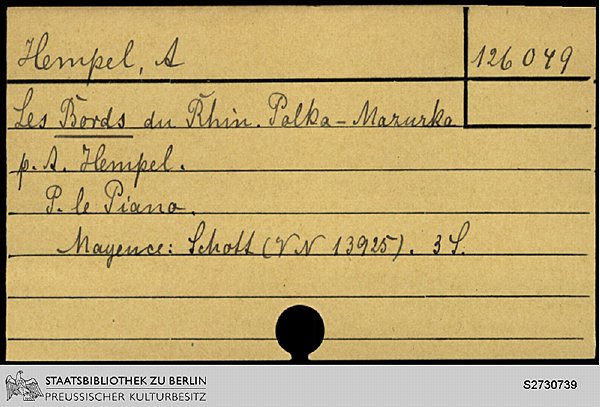 Hempel, A
126049
Les Bords du Rhin. Polka-Mazurka
p. A. Hempel.
P. le Piano.
Mayence: Schott (VN 13925). 3 S.
STAATSBIBLIOTHEK ZU BERLIN
PREUSSISCHER KULTURBESITZ
S2730739